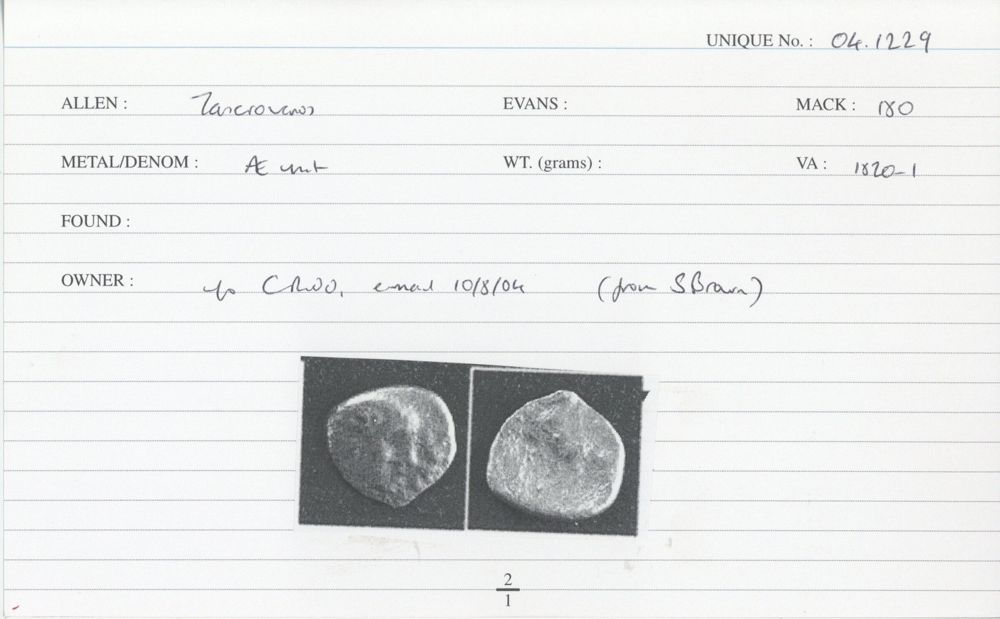 UNIQUE No. : 04.1229
ALLEN : Tasciovanos EVANS : MACK : 180
METAL/DENOM : Æ unit WT. (grams) : VA : 1820-1
FOUND :
OWNER : email 10/8/04 (from S Brown)
2
1